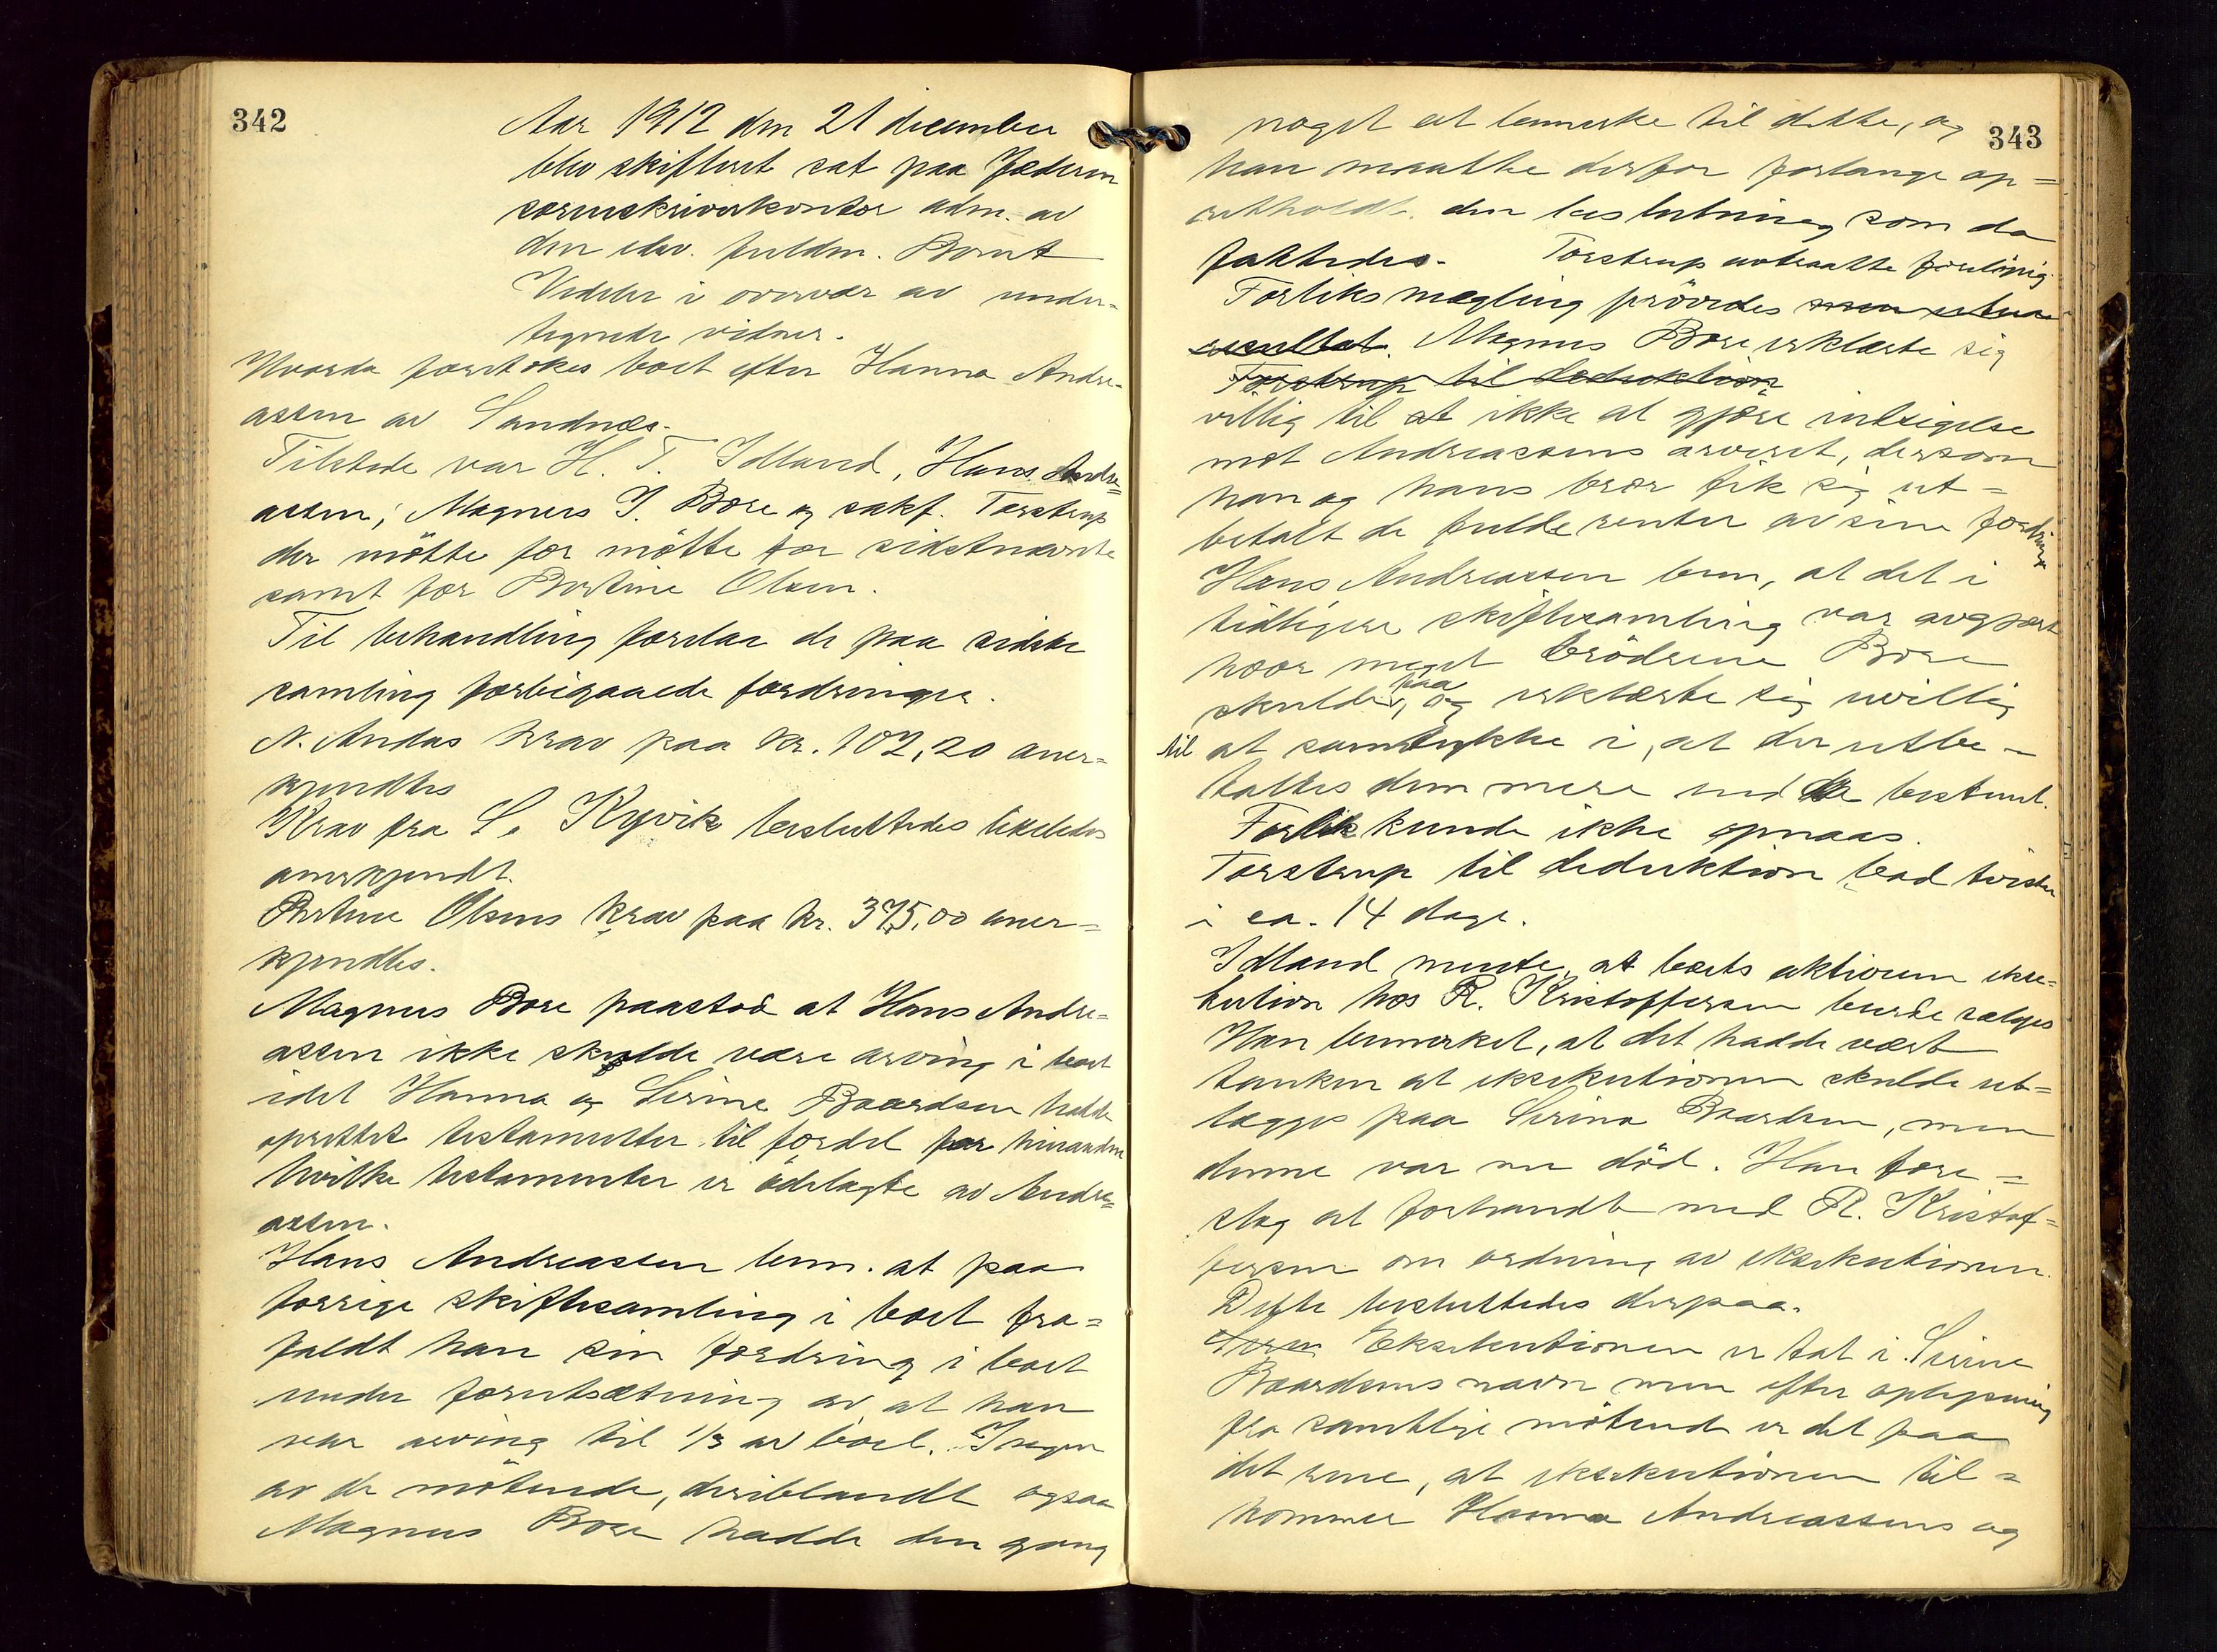 342
Aar 1912 den 21 december
blev skifteret sat paa Jæderen
sorenskriverkontor adm. av
den edsv. fuldm. Bernt
Vedeler i overvær av under-
tegnede vidner.
Hvorda foretokes boet efter Hanna Andre-
assen av Sandnes.
Tilstede var H. T. Idland, Hans Andre=
assen, Magnus I. Bore og sakf. Torstrup
der møtte for møtte for sidstnævnte
samt for Bertine Olsen.
Til behandling forelaa de paa sidste
samling forbigaaede fordringer.
N. Andas krav paa kr. 102,20 aner=
kjendtes
Krav fra S. Kyvik besluttedes likeledes
anerkjendt.
Bertine Olsens krav paa kr. 375,00 aner=
kjendtes.
Magnus Bore paastod at Hans Andre=
assen ikke skulde være arving i boet
idet Hanna og Serine Baardsen hadde
oprettet testamenter til fordel for hinanden
hvilke testamenter er ödelagte av Andre=
assen.
Hans Andreassen bem. at paa
forrige skiftesamling i boet fra=
faldt han sin fordring i boet
under forutsætning av at han
var arving til 1/3 av boet. Ingen
av de mötende, deriblandt ogsaa
Magnus Bore hadde den gang
343
noget at bemerke til dette, og
han maatte derfor forlange op=
retholdt den beslutning som da
fattedes. Torstrup avtraatte foreløpig.
Forliksmægling prövedes men uten
resultat. Magnus Bore erklærte sig
Torstrup til deduktion
villig til at ikke at gjøre indsigelse
mot Andreassens arveret, dersom
han og hans bror fik sig ut=
betalt de fulde renter av sine fordringer
Hans Andreassen bem, at det i
tidligere skiftesamling var avgjort
hvor meget brödrene Bore
skulde faa, og erklærte sig uvillig
til at samtykke i, at der utbe-
taltes dem mere end de bestemt.
Forlik kunde ikke opnaas.
Torstrup til deduktion bad tvisten
i ca. 14 dage.
Idland mente, at boets aktivum ekse=
kution hos R. Kristoffersen burde sælges
Han bemerket, at det hadde vært
tanken at eksekutionen skulde ut=
lægges paa Serina Baardsen, men
denne var nu död. Han fore=
slog at forhandle med R. Kristof=
fersen om ordning av eksekutionen.
Dette besluttedes derpaa.
Seren Eksekutionen er tat i Serine
Baardsens navn men efter oplysning
fra samtlige mötende er det paa
det rene, at eksekutionen til=
kommer Hanna Andreassens og